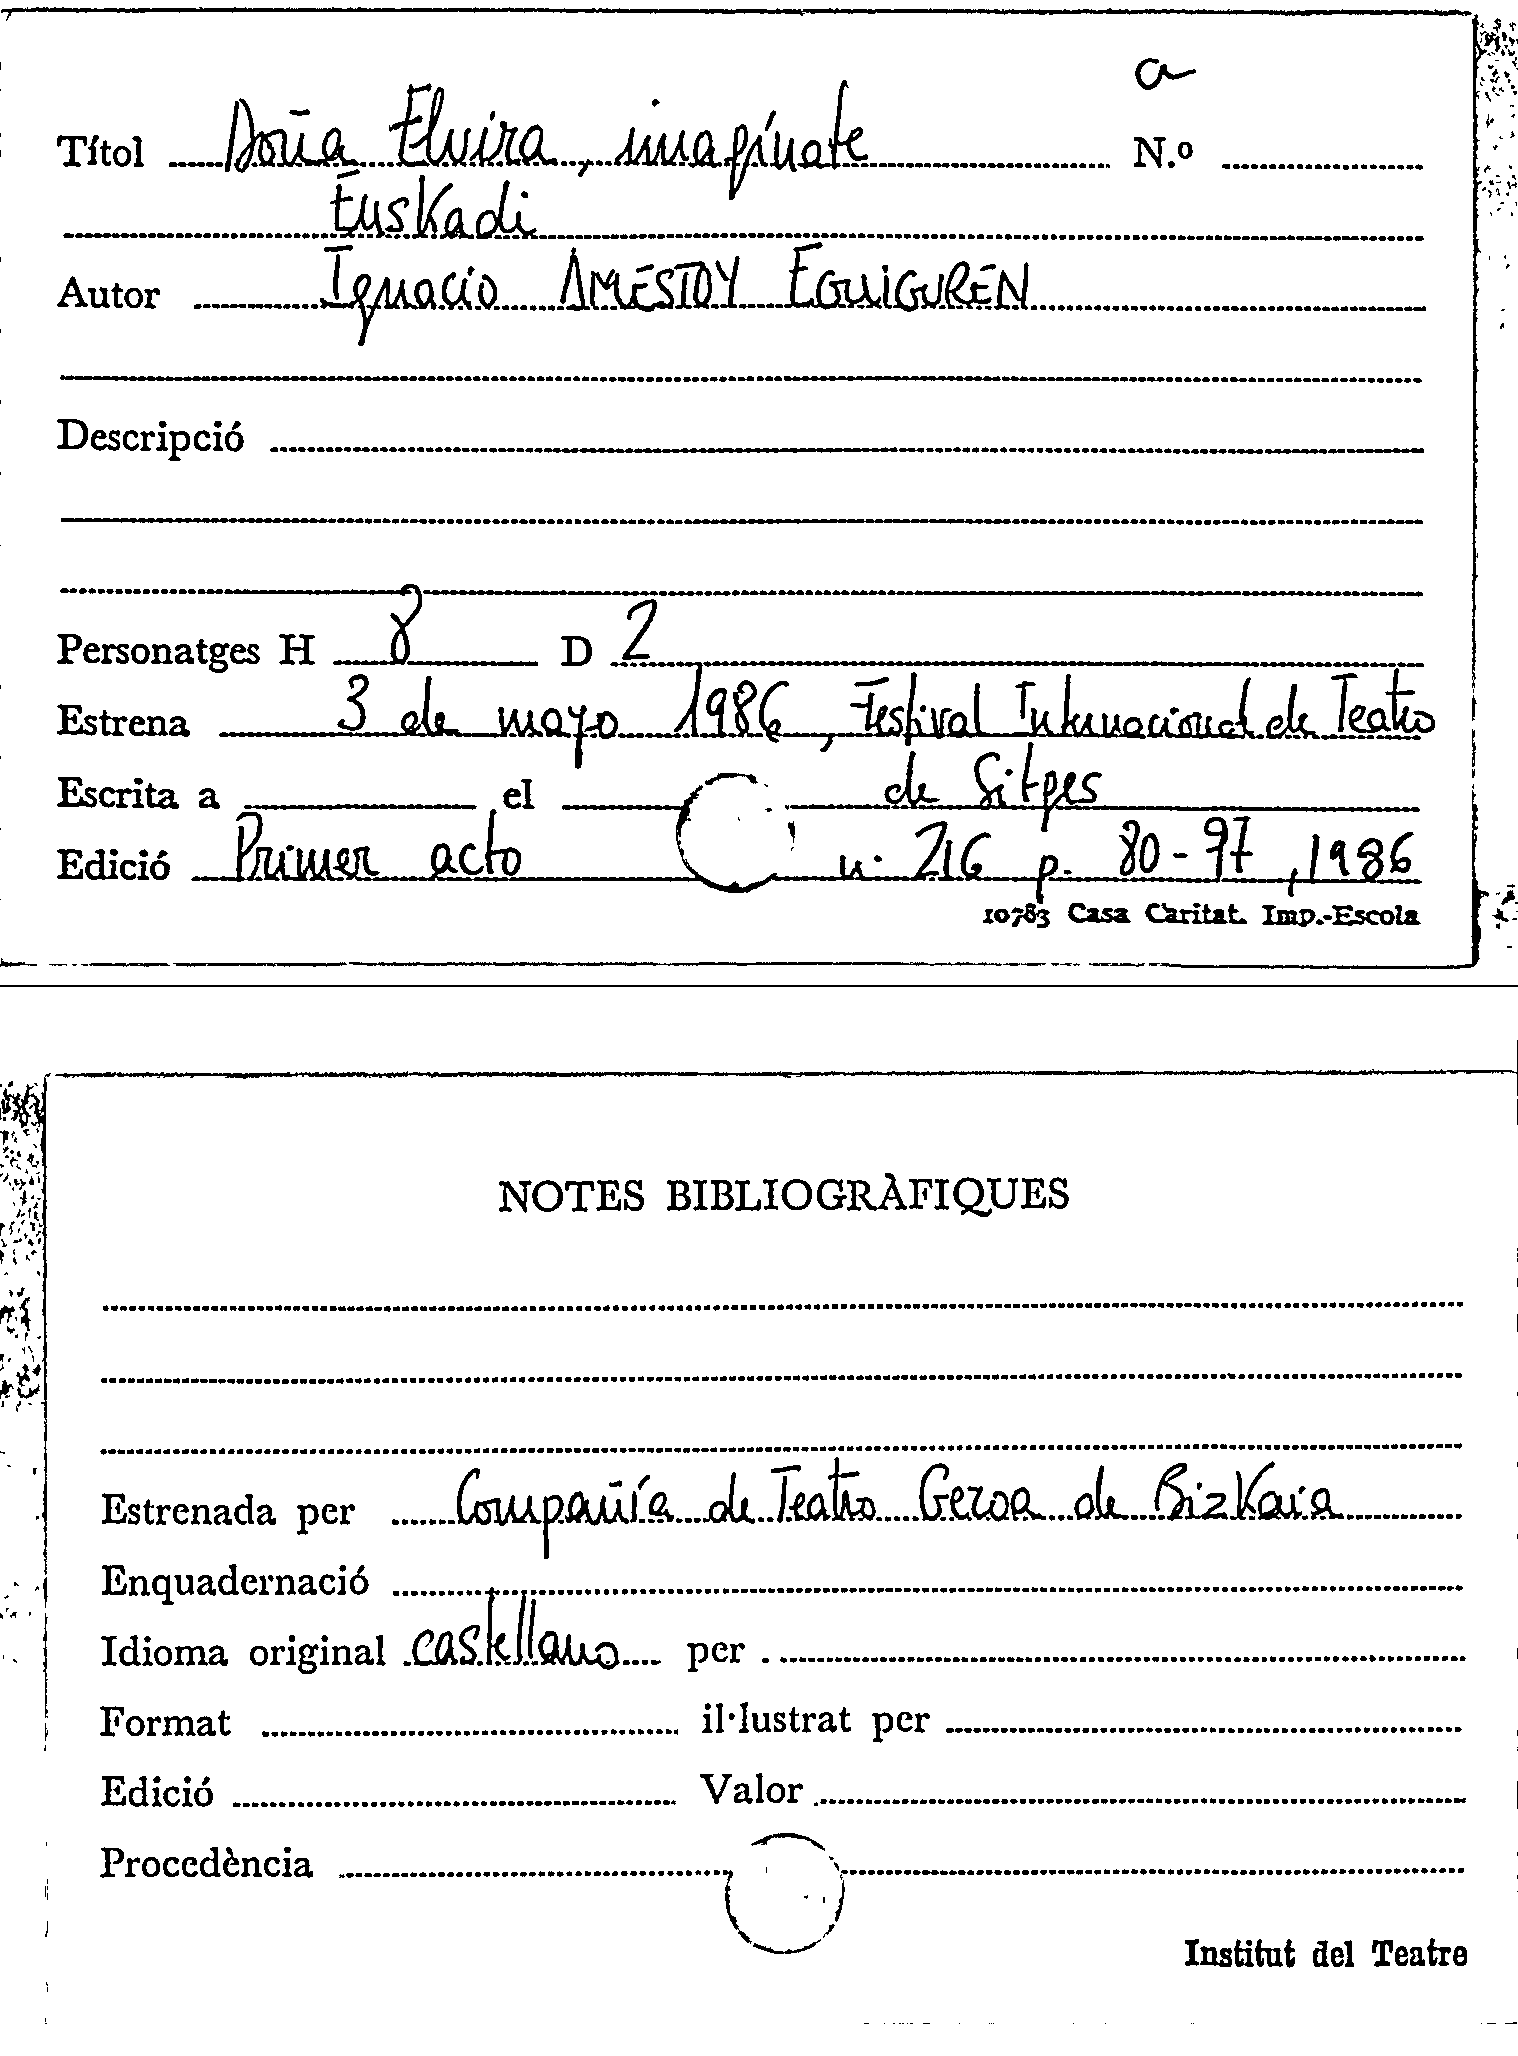 a
Títol Doña Elvira, imagínate N.º
Euskadi
Autor Ignacio AMESTOY EGUIGUREN
Descripció
Personatges H 8 D 2
Estrena 3 de mayo 1986, Festival Internacional de Teatro
Escrita a el de Sitges
Edició Primer acto n. 216 p. 80-97, 1986
10783 Casa Caritat. Imp.-Escola
NOTES BIBLIOGRÀFIQUES
Estrenada per Compañía de Teatro Geroa de Bizkaia
Enquadernació
Idioma original castellano per
Format il·lustrat per
Edició Valor
Procedència
Institut del Teatre